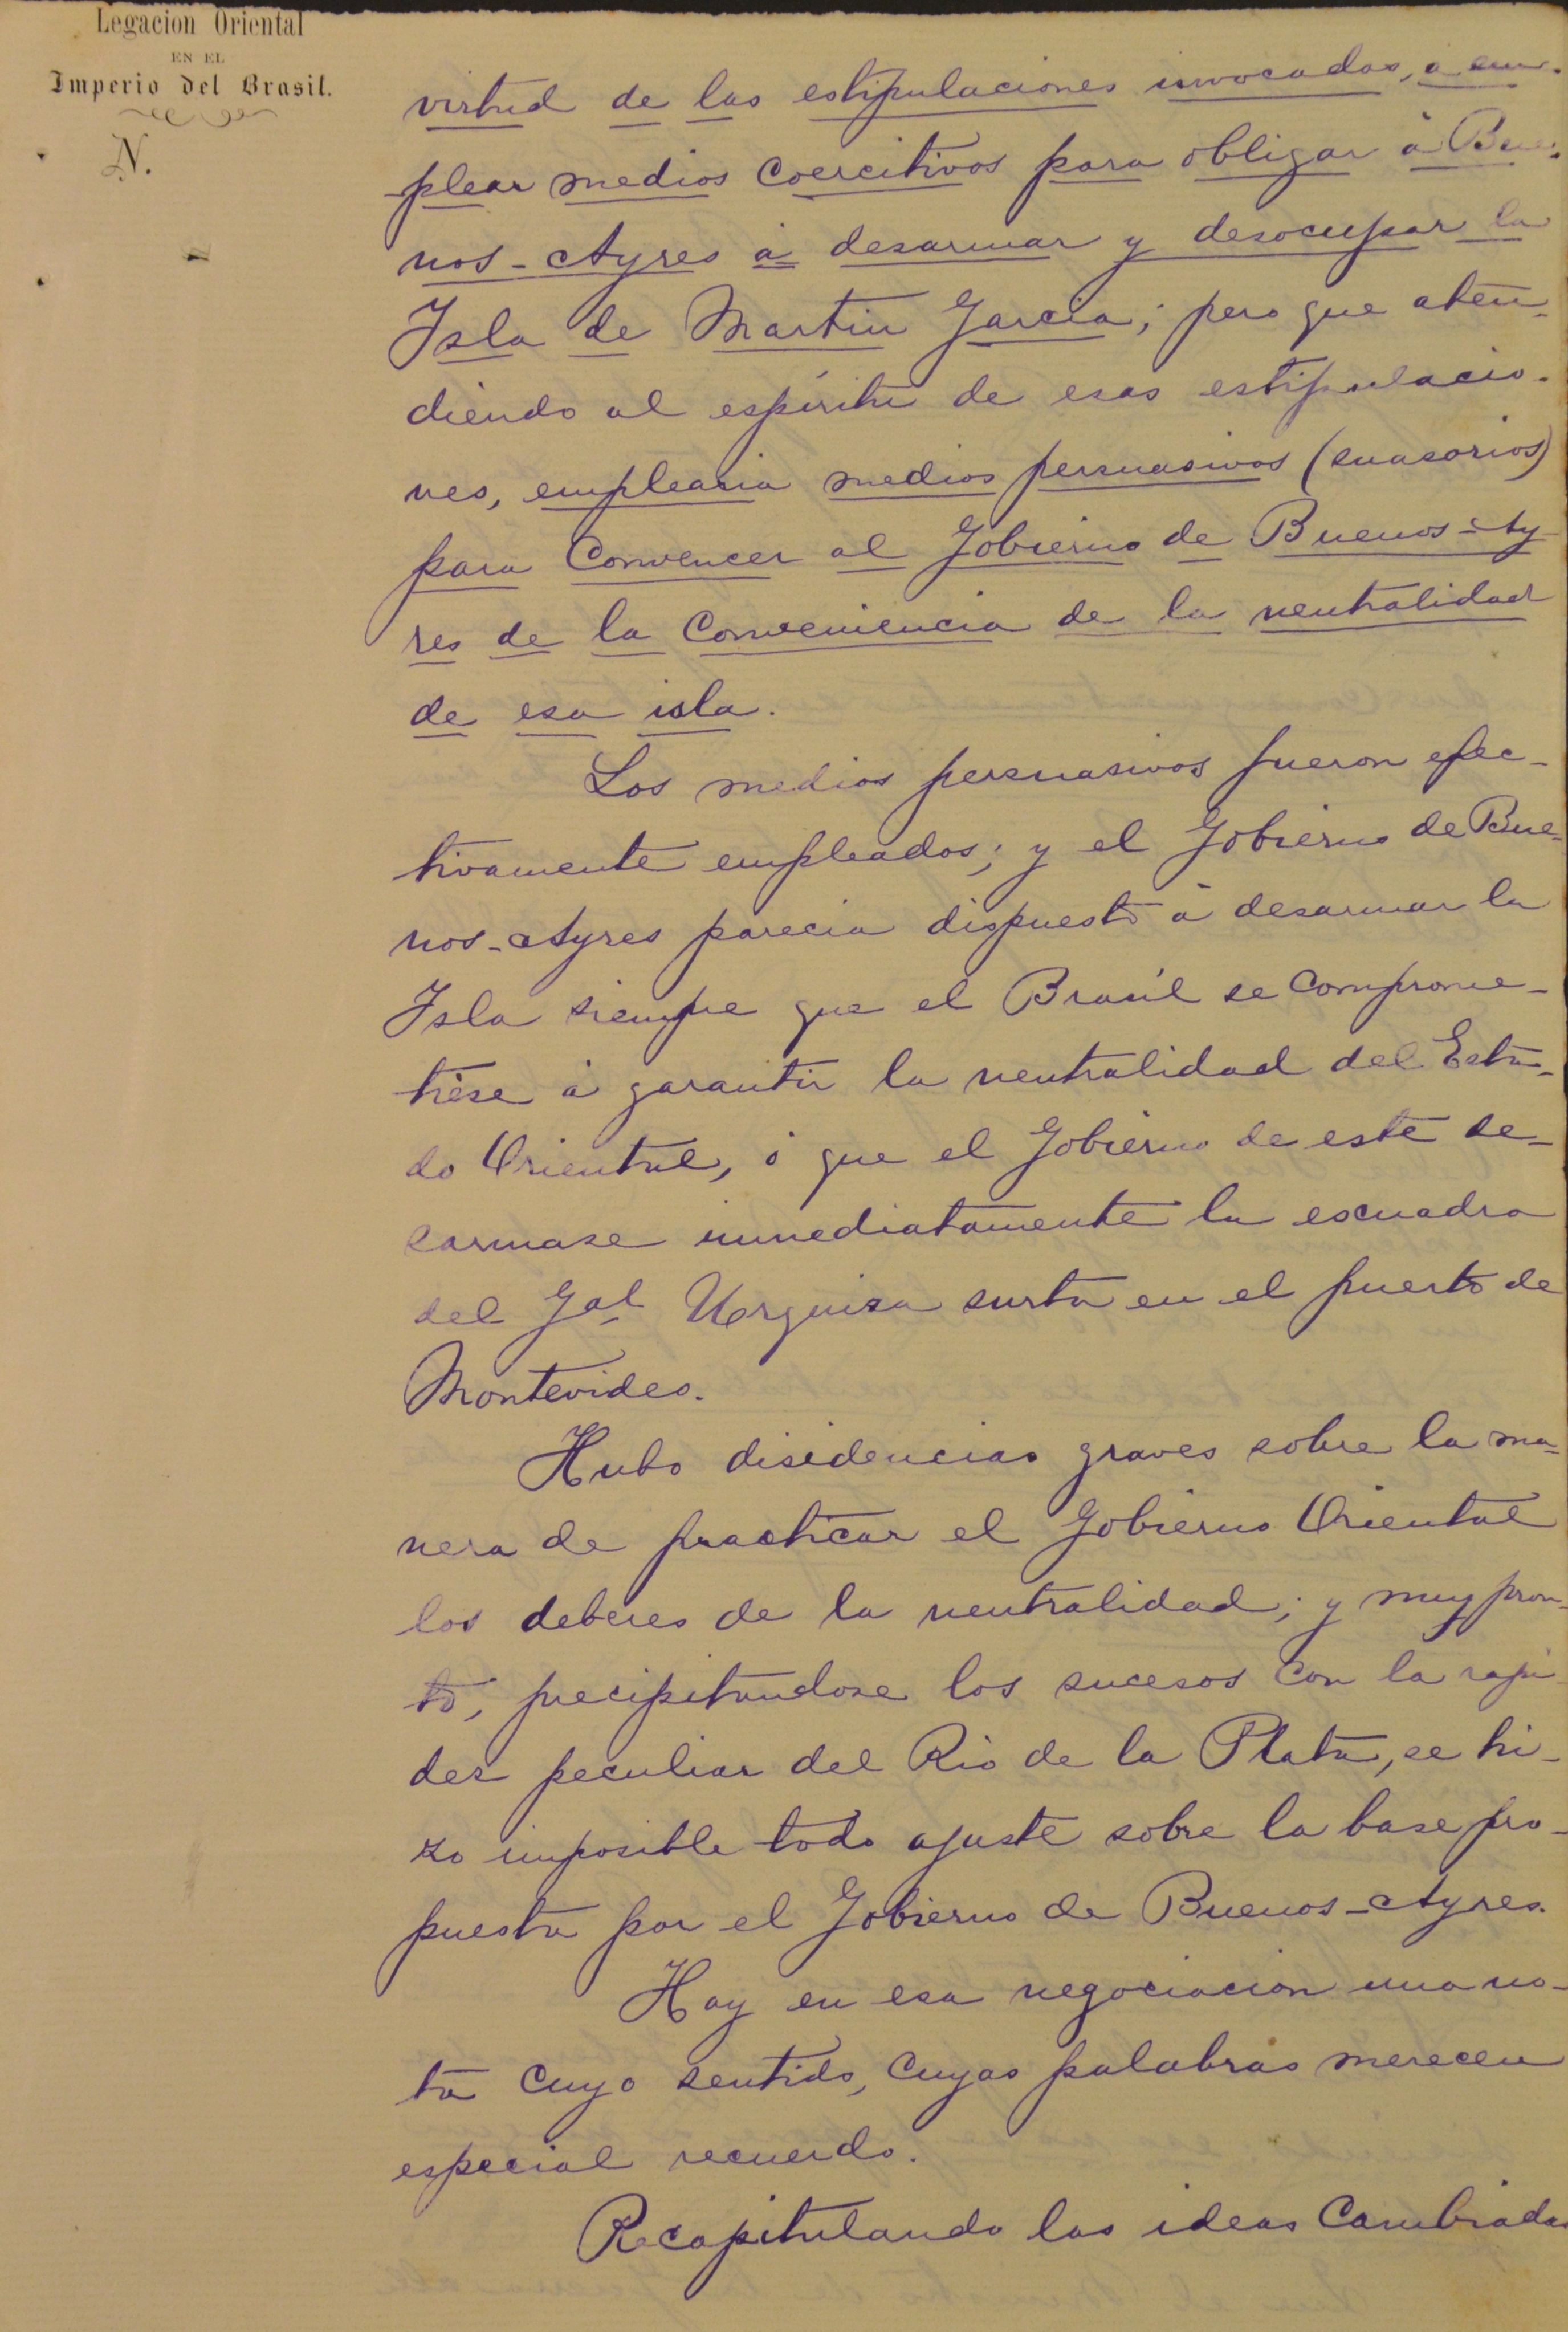 Legacion Oriental
EN EL
Imperio del Brasil.
N.
virtud de las estipulaciones invocadas, a em-
plear medios coercitivos para obligar á Bue-
nos-Ayres á desarmar y desocupar la
Isla de Martin Garcia; pero que aten-
diendo al espíritu de esas estipulacio-
nes, emplearia medios persuasivos (suasorios)
para convencer al Gobierno de Buenos-Ay-
res de la conveniencia de la neutralidad
de esa isla.
Los medios persuasivos fueron efec-
tivamente empleados; y el Gobierno de Bue-
nos-Ayres parecia dispuesto á desarmar la
Isla siempre que el Brasil se comprome-
tiése á garantir la neutralidad del Esta-
do Oriental, ó que el Gobierno de este de-
sarmase inmediatamente la escuadra
del Gal Urquiza surta en el puerto de
Montevideo.
Hubo disidencias graves sobre la ma-
nera de practicar el Gobierno Oriental
los deberes de la neutralidad; y muy pron-
to, precipitandose los sucesos con la rapi-
dez peculiar del Rio de la Plata, se hi-
zo imposible todo ajuste sobre la base pro-
puesta por el Gobierno de Buenos-Ayres.
Hay en esa negociacion una no-
ta cuyo sentido, cuyas palabras merecen
especial recuerdo.
Recapitulando las ideas cambiadas